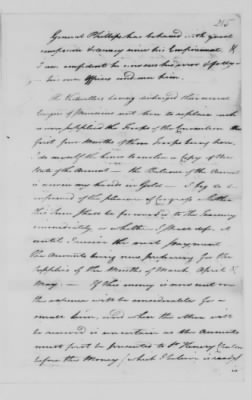 215
General Phillips has behaved with great
complaisance &amp; decency since his Confinement, &amp;
I am confident he
his own Officers and
The Victuallers having discharged their several
Cargoes of Provisions sent them to replace such
were supplied the Troops of the Convention the
first four Months of those Troops being here,
I do myself the honor to enclose a Copy of the
State of the Account — the Balance of the Account
is now in my hands in Gold — I beg to be
informed of the pleasure of Congress whether
this Sum shall be forwarded to the Treasury
immediately or whether I shall defer it
until I receive the next payment
the Accounts being now preparing for the
supplies of the Months of March April &amp;
May — If this money is now sent on
the expense will be considerable for a
small Sum, and when the other will
be received is uncertain as the Accounts
must first be presented to Sr Henry Clinton
before this Money (which I believe is ready)
is